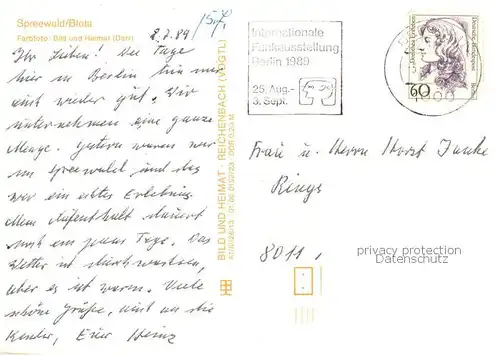 Spreewald/Blota
Farbfoto: Bild und Heimat (Darr)
2.7.89
Ihr Lieben! Die Tage
hier in Berlin tun mir
mal wieder gut. Wir
unternehmen eine ganze
Menge. Gestern waren wir
im Spreewald und das
war ein echtes Erlebnis.
Mein Aufenthalt dauert
noch ein paar Tage. Das
Wetter ist durchwachsen,
aber es ist warm. Viele
schöne Grüße, auch an die
Kinder, Euer Heinz
BILD UND HEIMAT · REICHENBACH (VOGTL)
Internationale
Funkausstellung
Berlin 1989
25. Aug.-
3. Sept.
60
Frau u. Herrn Horst Janke
8011
privacy protection
Datenschutz